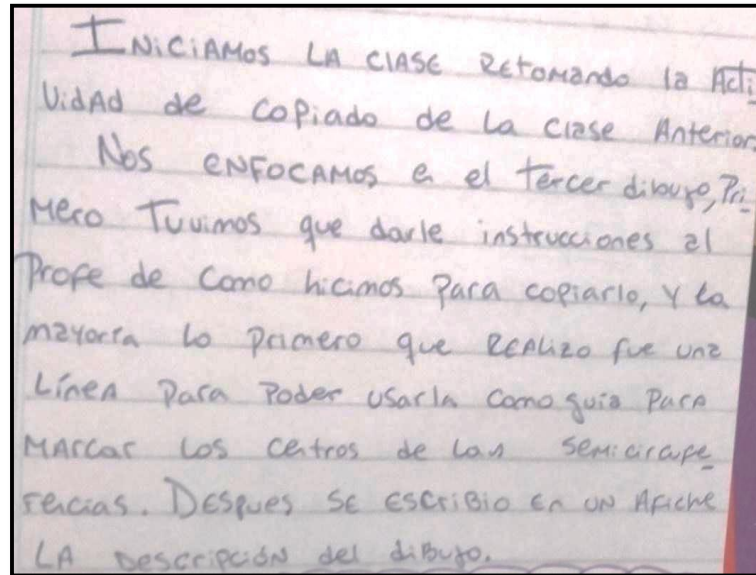 INICIAMOS LA CLASE RETOMANDO la Acti
VidAd de copiado de La clase Anterior.
Nos ENFOCAMOS e el tercer dibujo, Pri_
Mero Tuvimos que darle instrucciones al
Profe de Como hicimos Para copiarlo, Y La
mayorÍa Lo primero que REALizo fue una
LíneA Para Poder usarla como guia Para
MArcar Los centros de Las Semicircunfe_
rencias. DESpues SE EScriBio En UN AFiche
LA DEScripcióN del diBujo.